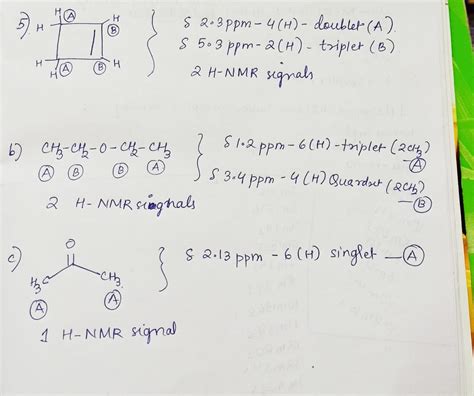 5)
H H
H (A) (B)
H (A) (B) H
H
δ 2.3 ppm - 4(H) - doublet (A).
δ 5.3 ppm - 2(H) - triplet (B)
2 H-NMR signals
b) CH3-CH2-O-CH2-CH3
(A) (B) (B) (A)
δ 1.2 ppm - 6(H) - triplet (2CH3)
(A)
δ 3.4 ppm - 4(H) Quardret (2CH2)
(B)
2 H-NMR signals
c)
O
H3C CH3.
(A) (A)
δ 2.13 ppm - 6(H) singlet - (A)
1 H-NMR signal